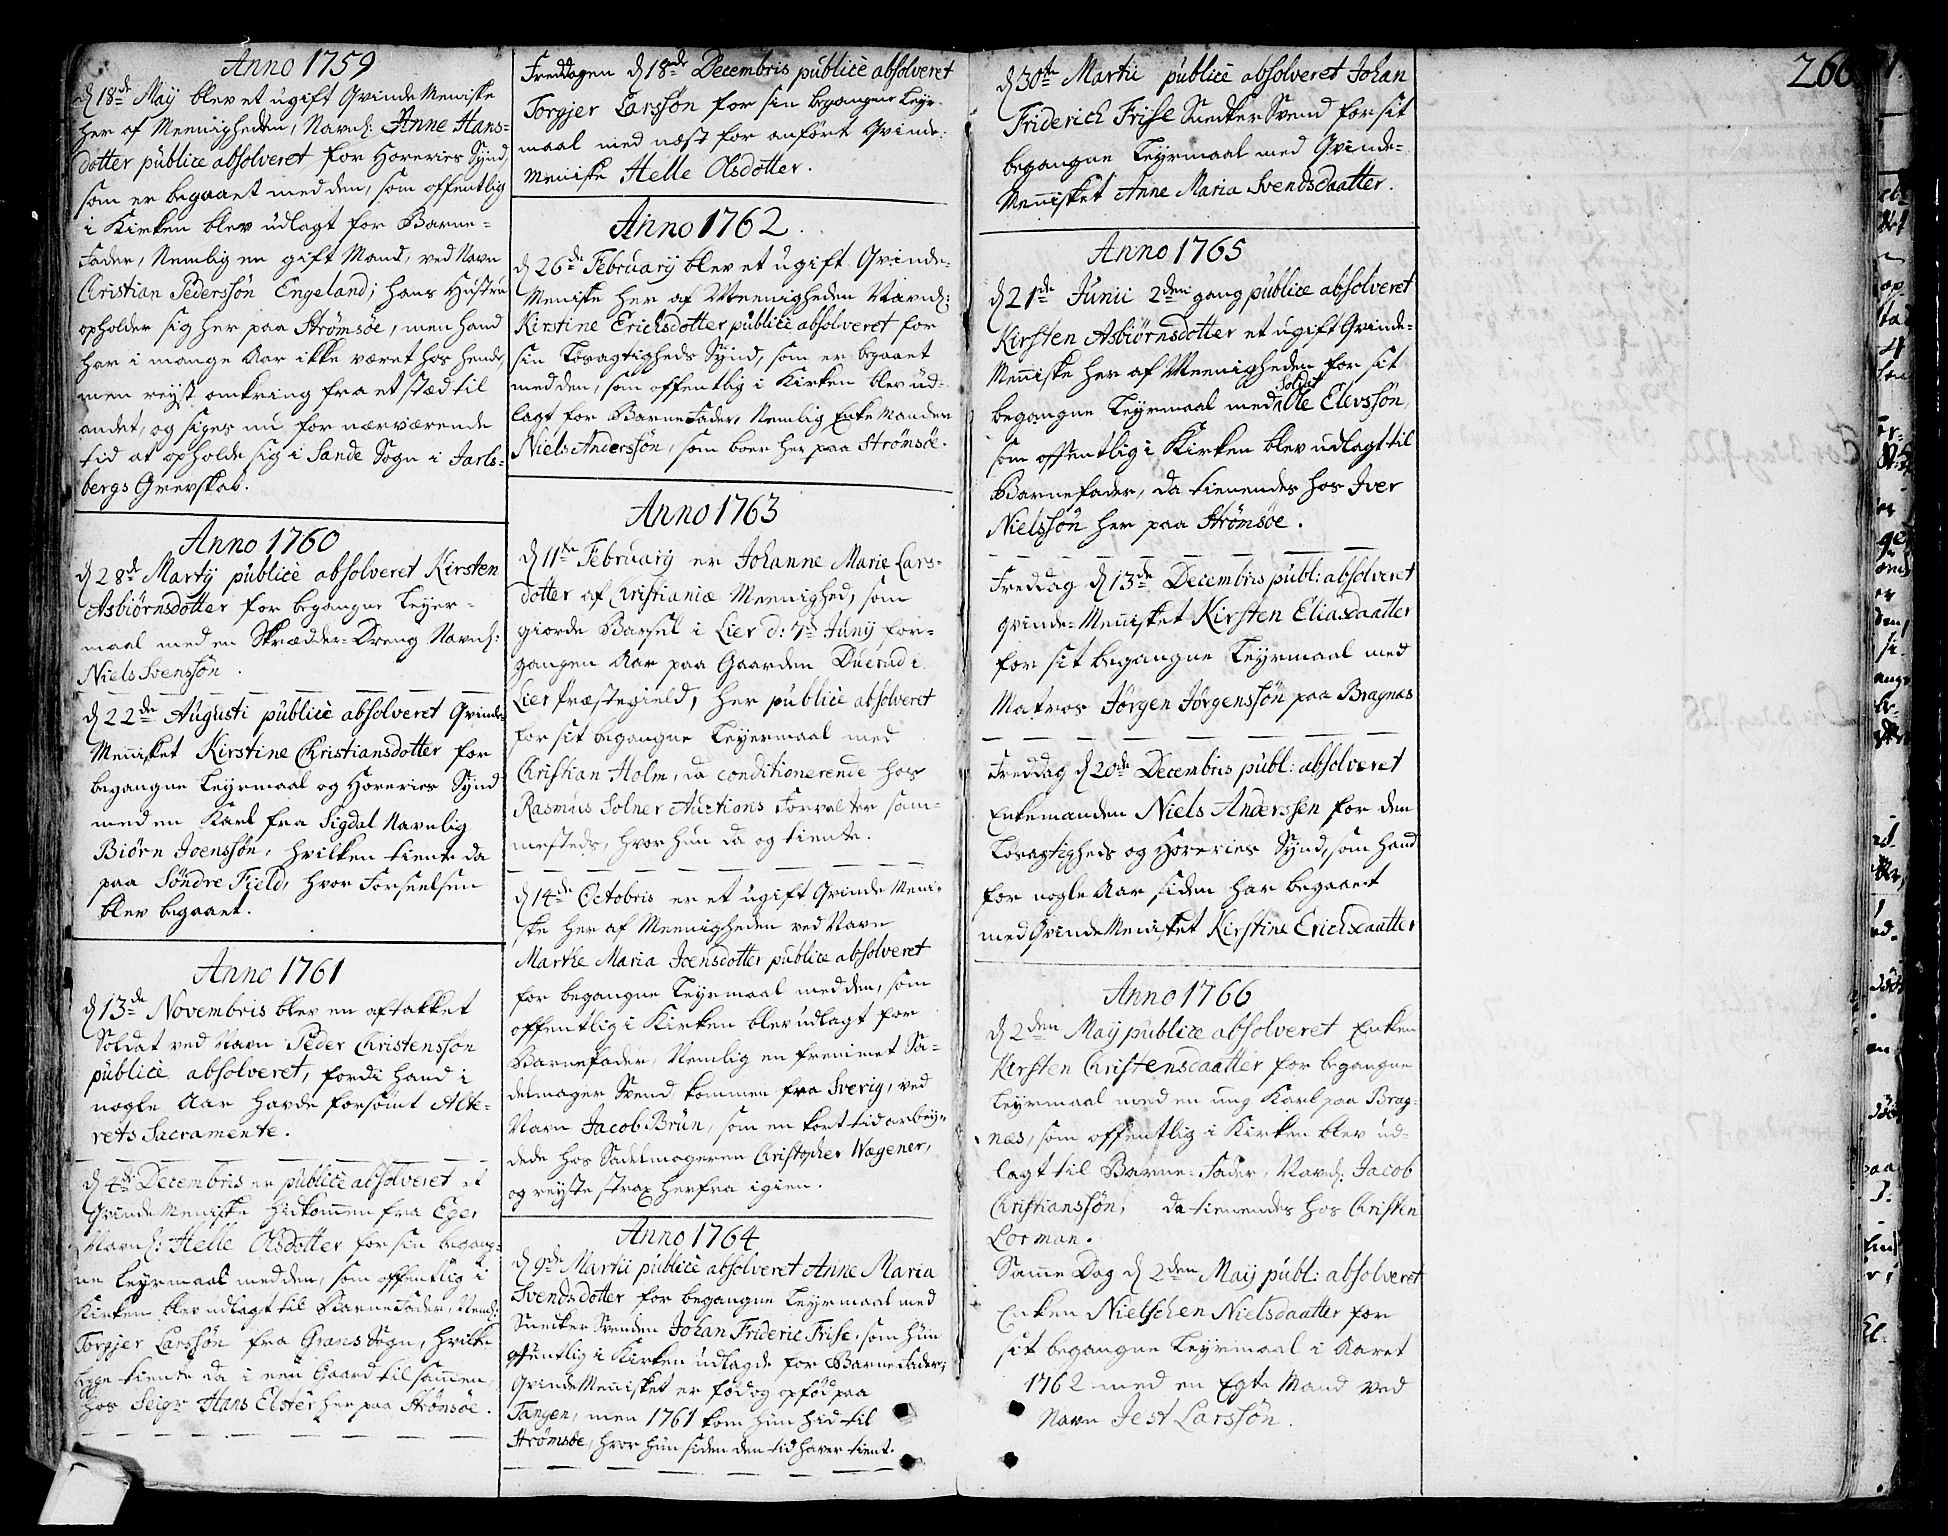 Anno 1759
d 18de Maij blev et ugift Qvinde Meniske
her af Meenigheden, Navnl: Anne Hans-
dotter publice absolveret for Horeries Synd,
som er begaaet med den, som offentlig
i Kirken blev udlagt for Barne-
Fader, Nemlig en gift Mand, ved Navn
Christian Pederssøn Engeland; hans Hustru
opholder sig her paa Strømsøe, men hand
har i mange Aar ikke været hos hende,
men reyst omkring fra et stæd til
andet, og siges nu for nærværende
tid at opholde sig i Sande Sogn i Jarls-
bergs Grevskab.
Anno 1760
d 28de Martij publice absolveret Kirsten
Asbiørnsdotter for begangne Leyer-
maal med en Skrædder-Dreng Navnl:
Niels Svenssøn.
d 22de Augusti publice absolveret Qvinde-
Mennisket Kirstine Christiansdotter for
begangne Leyrmaal og Horeries Synd
med en Karl fra Sigdal Navnlig
Biørn Joenssøn, hvilken tiente da
paa Søndre Field, hvor Forseelsen
blev begaaet.
Anno 1761
d 13de Novembris blev en aftakket
Soldat ved Navn Peder Christenssøn
publice absolveret, fordi hand i
nogle Aar havde forsømt Alte-
rets Sacramente.
d 4de Decembris er publice absolveret et
Qvinde Meniske hidkommen fra Eger
Navnl: Helle Olsdotter for sin begang-
ne Leyrmaal med den, som offentlig i
Kirken blev udlagt til Barne Fader, Neml:
Torgjer Larssøn fra Grans Sogn, hvilke
begge tiente da i een Gaard tilsammen,
hos Seigr Hans Elster her paa Strømsøe.
Freddagen d 18de Decembris publice absolveret
Torgjer Larssøn for sin begangne Leyr-
maal med næst for anførte Qvinde-
Meniske Helle Olsdotter.
Anno 1762.
d 26de Februarij blev et ugift Qvinde-
Meniske her af Meenigheden Navnl:
Kirstine Erichsdotter publice absolveret for
sin Løsagtigheds Synd, som er begaaet
med den, som offentlig i Kirken blev ud-
lagt for Barne Fader, Nemlig Enke Manden
Niels Anderssøn, som boer her paa Strømsøe.
Anno 1763
d 11te Februarij er Johanne Marie Lars-
dotter af Christianiæ Meenighed, som
giorde Barsel i Lier d: 7de Junij for-
gangen Aar paa Gaarden Duerud i
Lier Præstegield, her publice absolveret
for sit begangne Leyermaal med
Christian Holm, da conditionerende hos
Rasmus Solner Auctions Forvalter sam-
mesteds, hvor hun da og tiente.
d 14de Octobris er et ugift Qvinde Meni-
ske her af Meenigheden ved Navn
Marthe Maria Joensdotter publice absolveret
for begangne Leyrmaal med den, som
offentlig i Kirken blev udlagt for
Barnefader, Nemlig en fremmet Sa-
delmager Svend kommen fra Sverig, ved
Navn Jacob Brün, som en kort tid arbey-
dede hos Sadelmageren Christopher Wagener,
og reyste strax herfra igien.
Anno 1764
d 9de Martii publice absolveret Anne Maria
Svendsdotter for begangne Leyrmaal med
Snecker Svenden Johan Frideric Frise, som hun
offentlig i Kirken udlagde for Barne Fader;
Qvinde Mennisket er fød og opfød paa
Tangen, men 1761 kom hun hid til
Strømsøe, hvor hun siden den tid haver tient.
d 30te Martii publice absolveret Johan
Friderich Frise Snecker Svend for sit
begangne Leyrmaal med Qvinde-
Mennisket Anne Maria Svendsdaatter.
Anno 1765
d 21de Junii 2den gang publice absolveret
Kirsten Asbiørnsdotter et ugift Qvinde-
Menniske her af Meenigheden for sit
begangne Leyrmaal med Soldat Ole Elevssøn,
som offentlig i Kirken blev udlagt til
Barnefader, da tienendes hos Iver
Nielssøn her paa Strømsøe.
Freddag d 13de Decembris publ: absolveret
Qvinde-Mennisket Kirsten Eliasdaatter
for sit begangne Leyrmaal med
Matros Jørgen Jørgenssøn paa Bragnæs
Freddag d 20de Decembris publ: absolveret
Enkemanden Niels Anderssen for den
Løsagtigheds og Horeries Synd, som hand
for nogle Aar siden har begaaet
med Qvinde Menisket Kirstine Erichsdaatter
Anno 1766
d 2den Maij publice absolveret Enken
Kirsten Christensdaatter for begangne
Leyrmaal med en ung Karl paa Brag-
næs, som offentlig i Kirken blev ud-
lagt til Barne-Fader, Navnl: Jacob
Christianssøn, da tienendes hos Christen
Lorman.
Samme Dag d 2den Maij publ: absolveret
Enken Nielschen Nielsdaatter for
sit begangne Leyrmaal i Aaret
1762 med en Egte Mand ved
Navn Jest Larssøn.
266